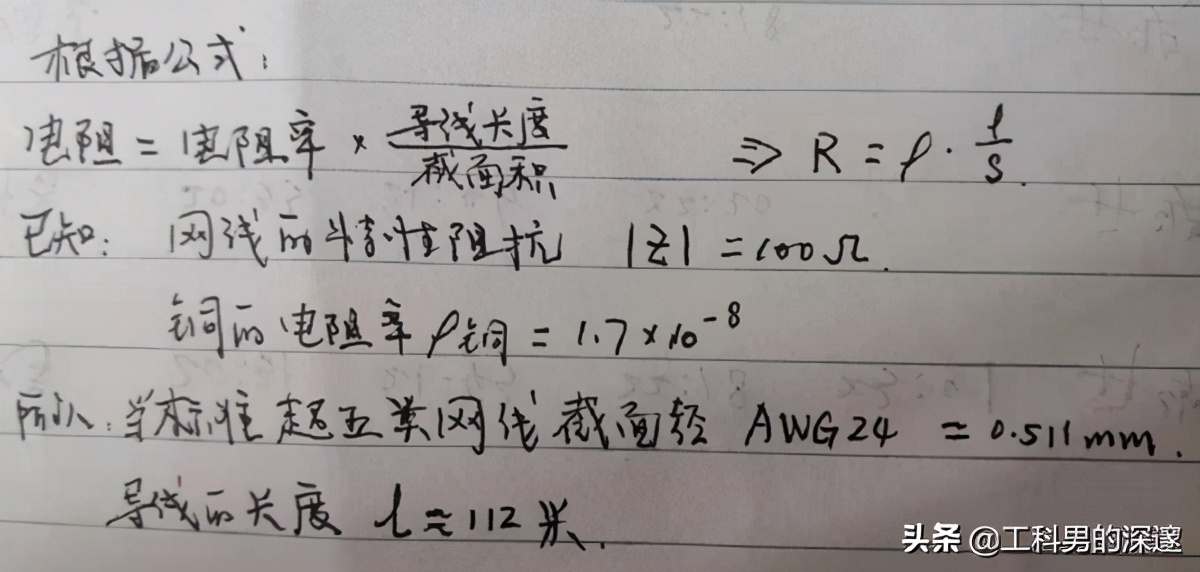 根据公式:
电阻 = 电阻率 × 导线长度/截面积 ⇒ R = ρ · l/S.
已知: 网线的特性阻抗 |Z| = 100Ω.
铜的电阻率 ρ铜 = 1.7×10⁻⁸
所以: 当标准超五类网线截面径 AWG24 = 0.511mm.
导线的长度 l ≈ 112 米.
头条 @工科男的深邃